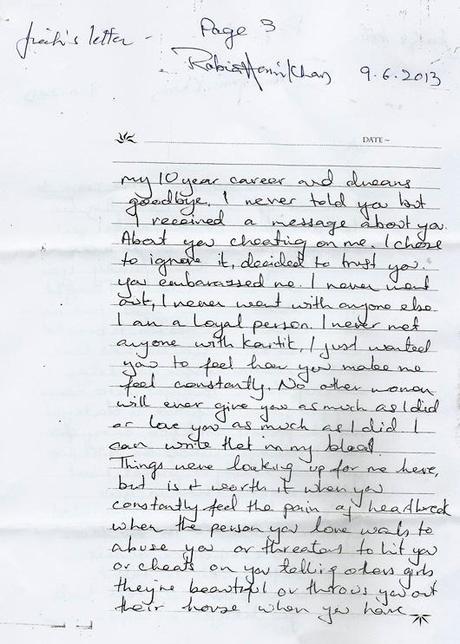 Page 3
letter -
Rabia Khan 9.6.2013
DATE ~
my 10 year career and dreams
goodbye. I never told you but
I received a message about you.
About you cheating on me. I chose
to ignore it, decided to trust you.
you embarassed me. I never went
out, I never went with anyone else.
I am a loyal person. I never met
anyone with Kartik, I just wanted
you to feel how you make me
feel constantly. No other woman
will ever give you as much as I did
or love you as much as I did I
can write that in my blood.
Things were looking up for me here,
but is it worth it when you
constantly feel the pain of heartbreak
when the person you love wants to
abuse you or threatens to hit you
or cheats on you telling other girls
they're beautiful or throws you out
their house when you have